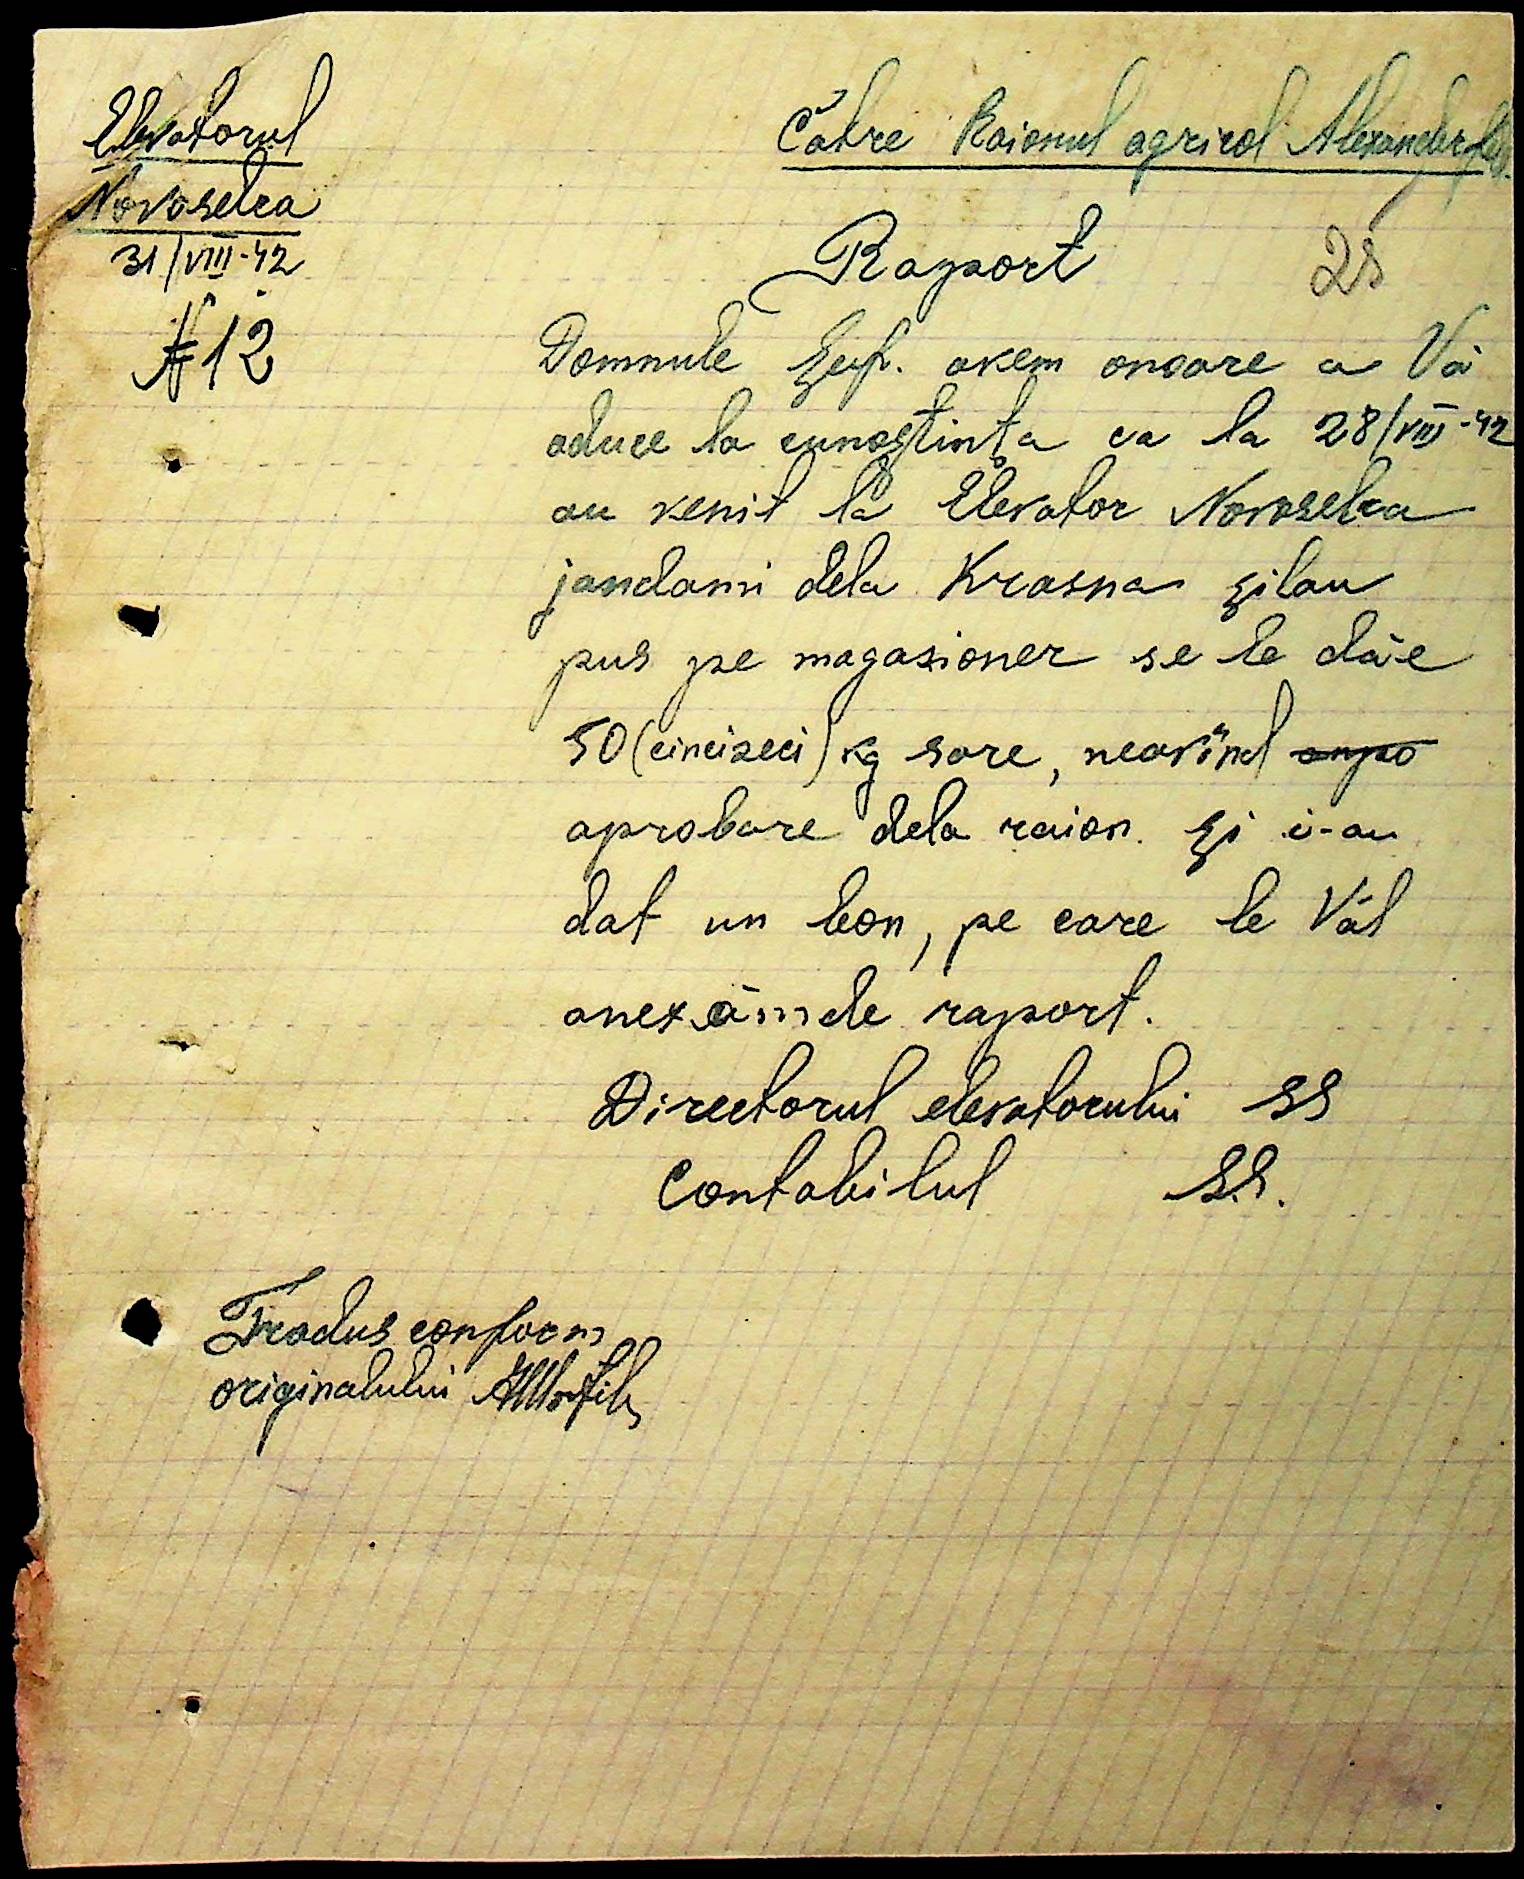 Elevatorul
Novoselca
31/VIII-42
№ 12
Către Raionul agricol Alexanderfeld.
Raport
28
Domnule Șef. avem onoare a Vă
aduce la cunoștința ca la 28/VIII-42
au venit la Elevator Novoselca
jandami dela Krasna și lau
pus pe magazioner se le dă-e
50 (cincizeci) kg sare, neavînd anpo
aprobare dela raion. Și i-au
dat un bon, pe care le Văl
anexămde raport.
Directorul elevatorului SS
Contabilul S.S.
Tradus conform
originalului